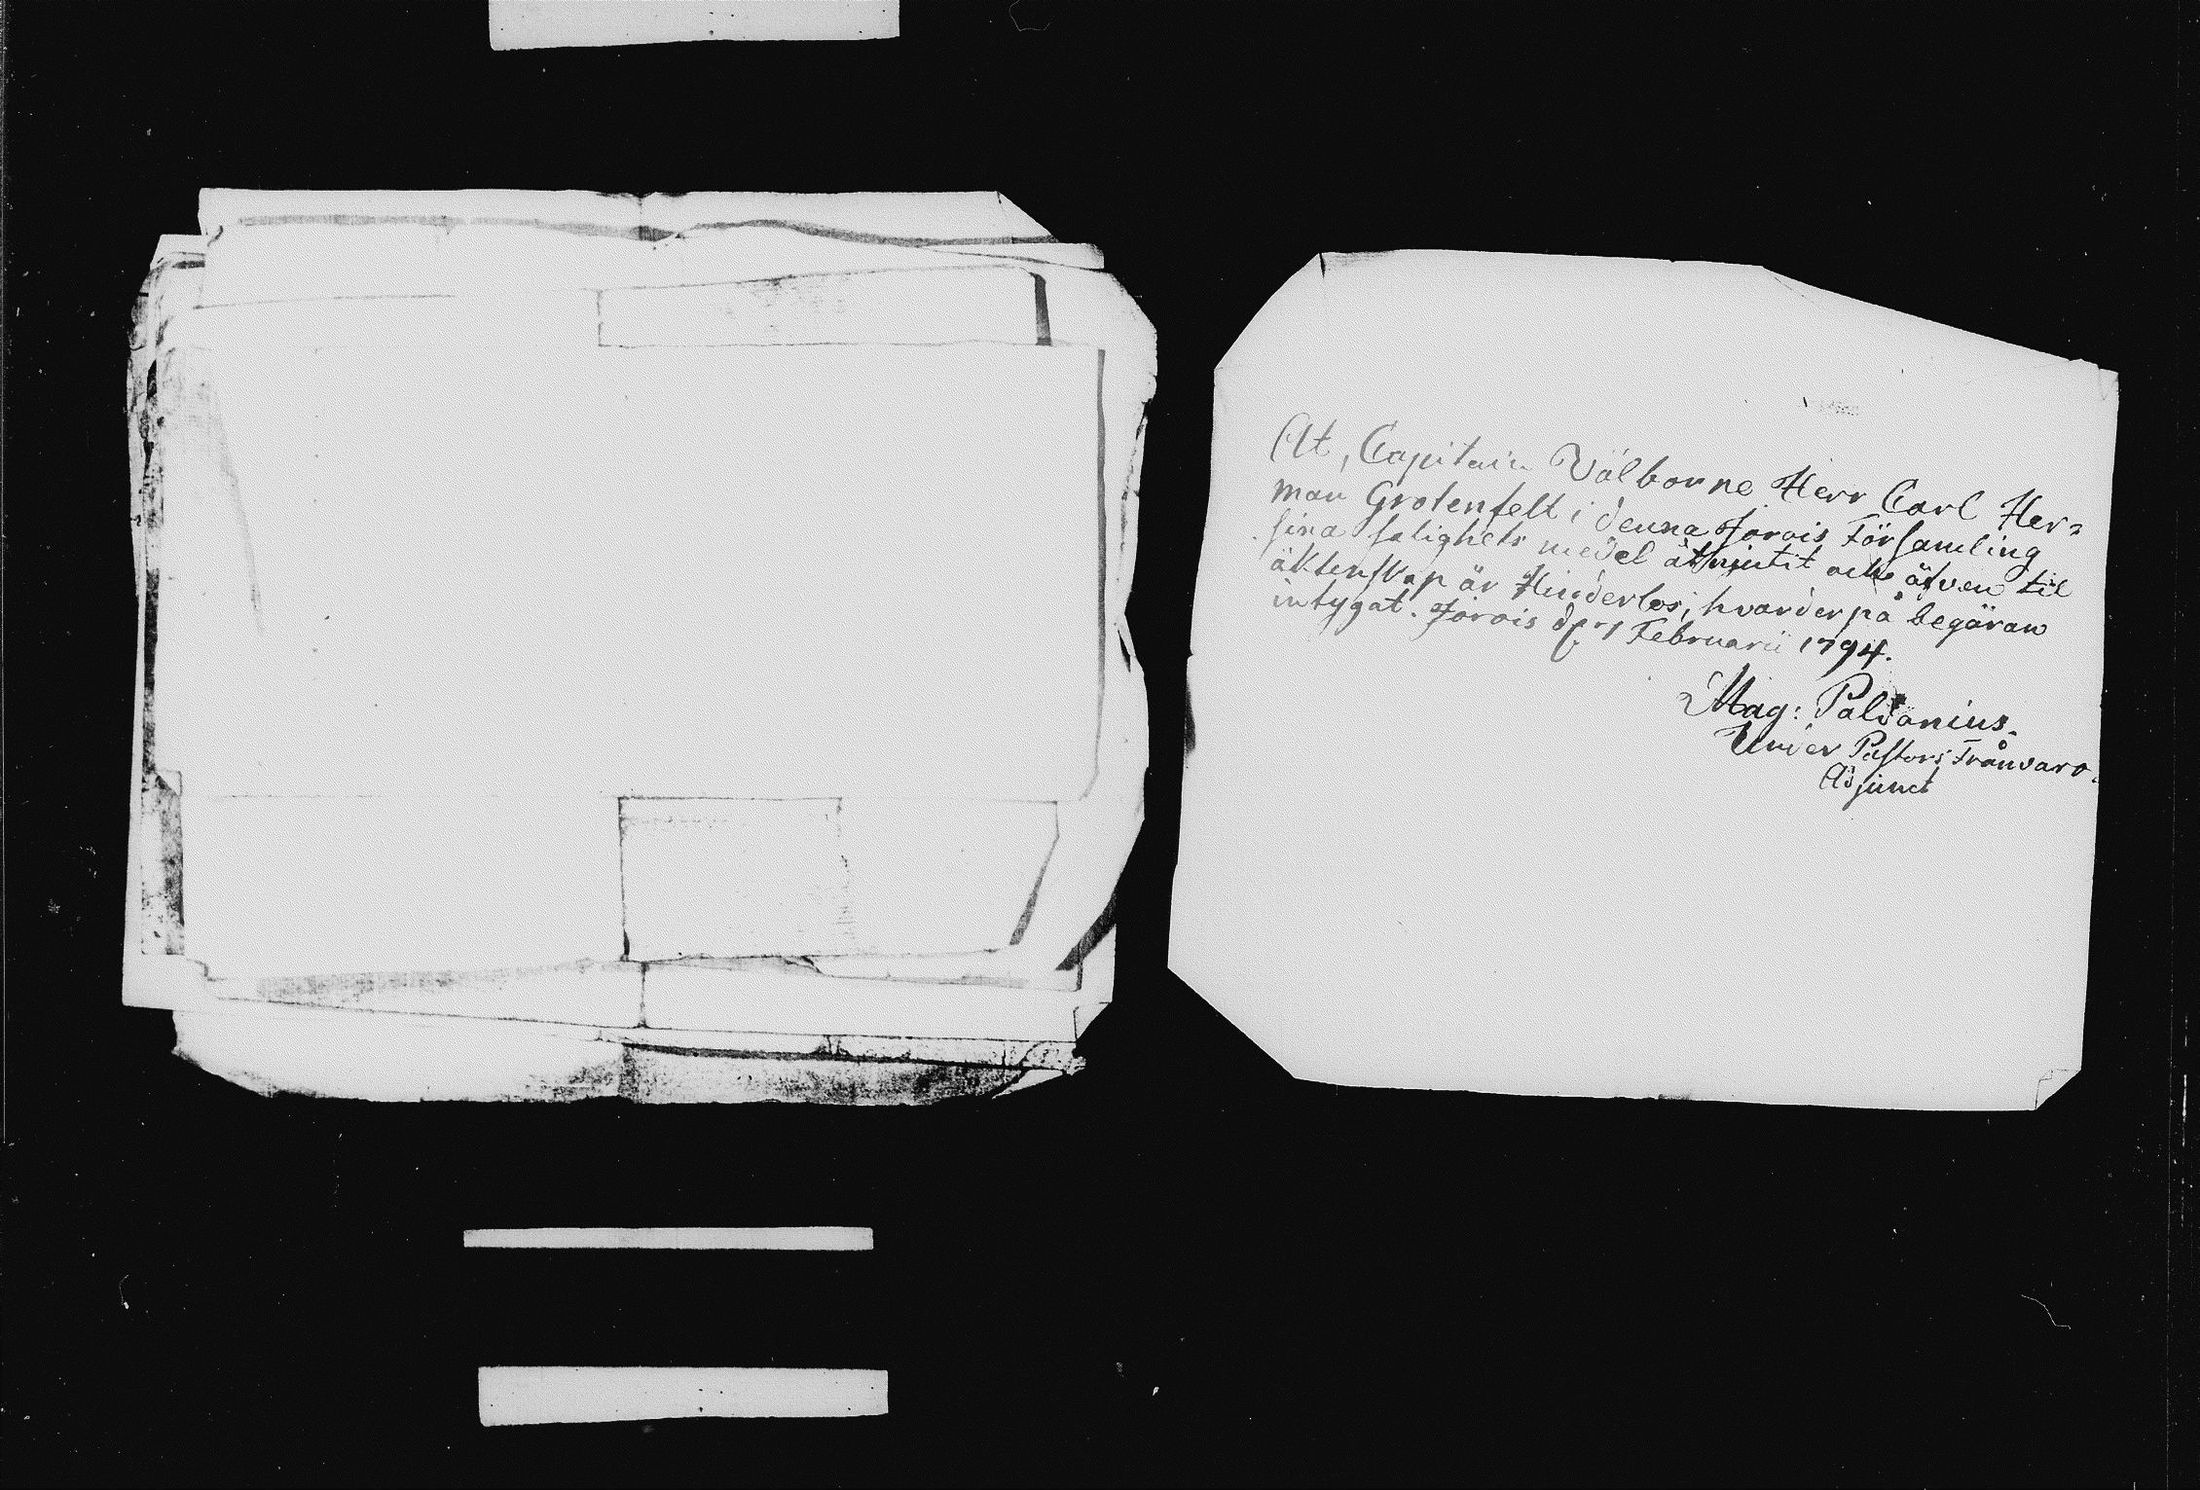 At, Capitain Välborne Herr Carl Her=
man Grotenfelt i denna Jorois Församling
sina salighets medel åtnjutit och äfven til
äktenskap är Hinderlös; hvarder på begäran
intygat. Jorois d. 1 Februarii 1794.
Mag: Paldanius.
Under Pastors Frånvaro.
Adjunct